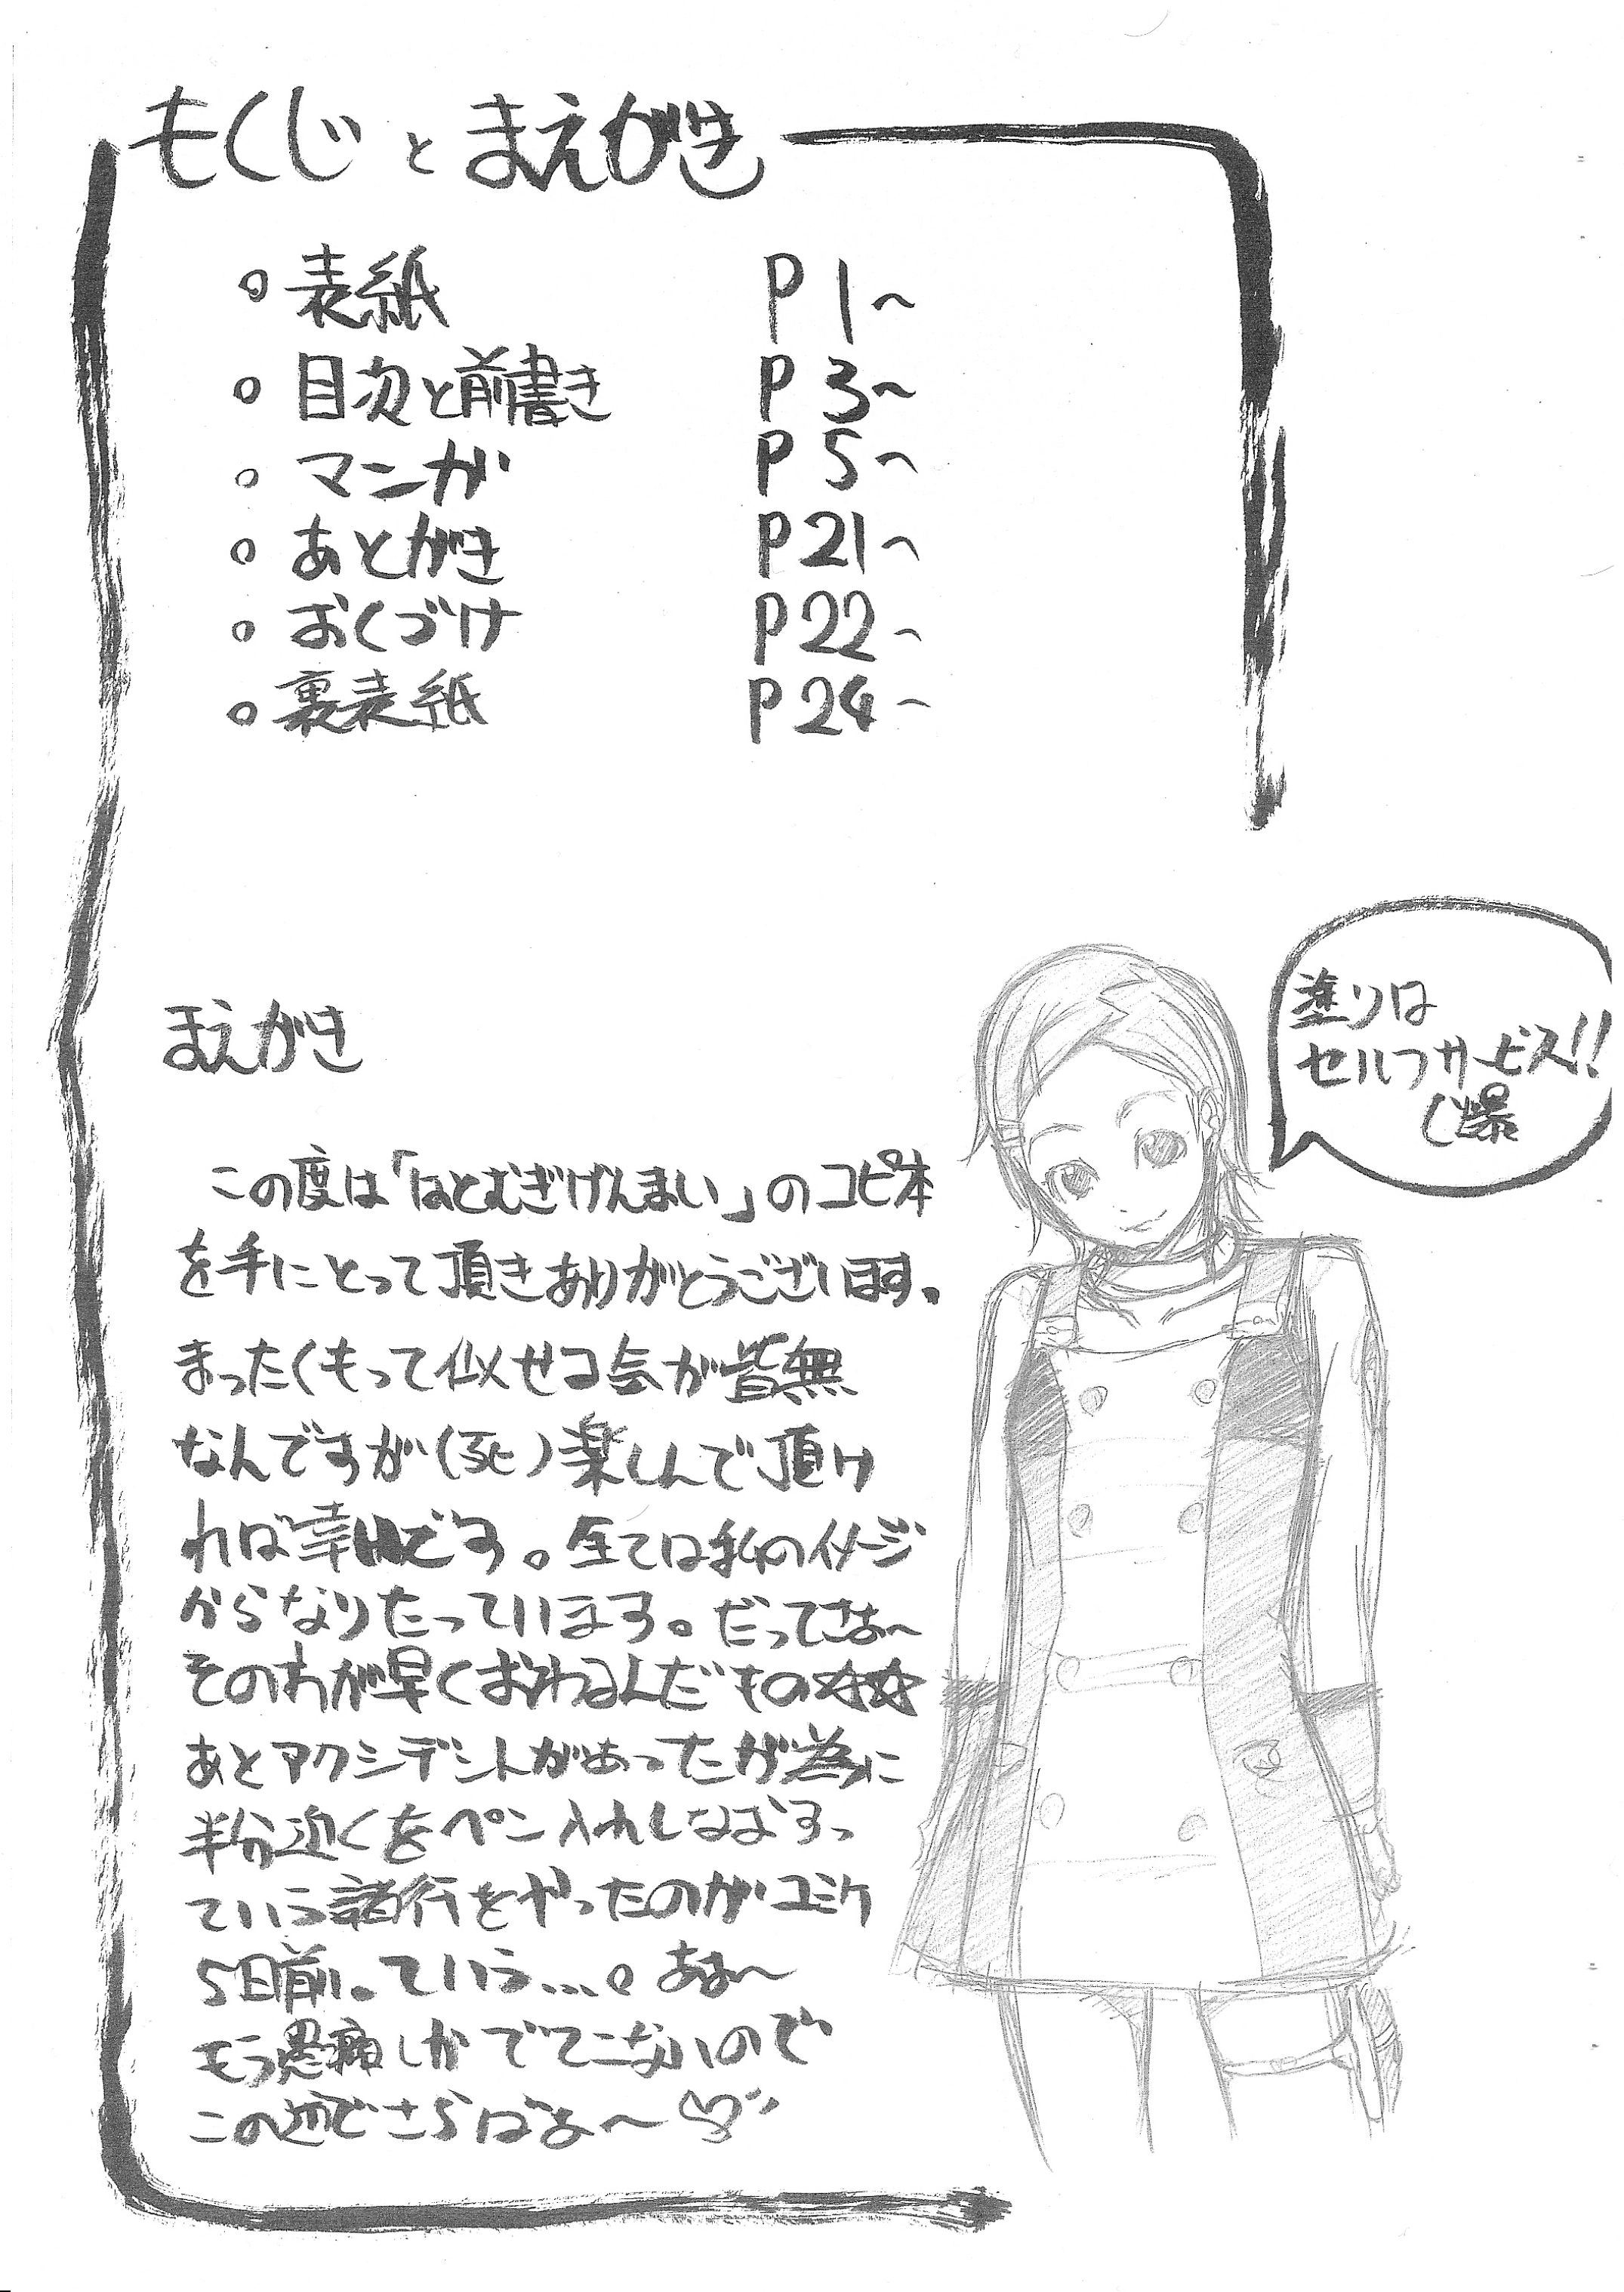 もくじ と まえがき
○ 表紙 P1~
○ 目次と前書き P3~
○ マンガ P5~
○ あとがき P21~
○ おくづけ P22~
○ 裏表紙 P24~
塗りは
セルフサービス!!
(爆
まえがき
この度は「はとむぎげんまい」のコピ本
を手にとって頂きありがとうございます。
まったくもって似せコ会が皆無
なんですが(死)楽しんで頂け
れば幸いです。全ては私のイメージ
からなりたっています。だってさぁ~
そのわが早くおわるんだもの☆☆
あとアクシデントがあったが為に
半分近くをペン入れしなおすっ
ていう諸行をやったのがコミケ
5日前。ていう…。あぁ~
もう愚痴しかでてこないので
この辺でさらばぢゃ~